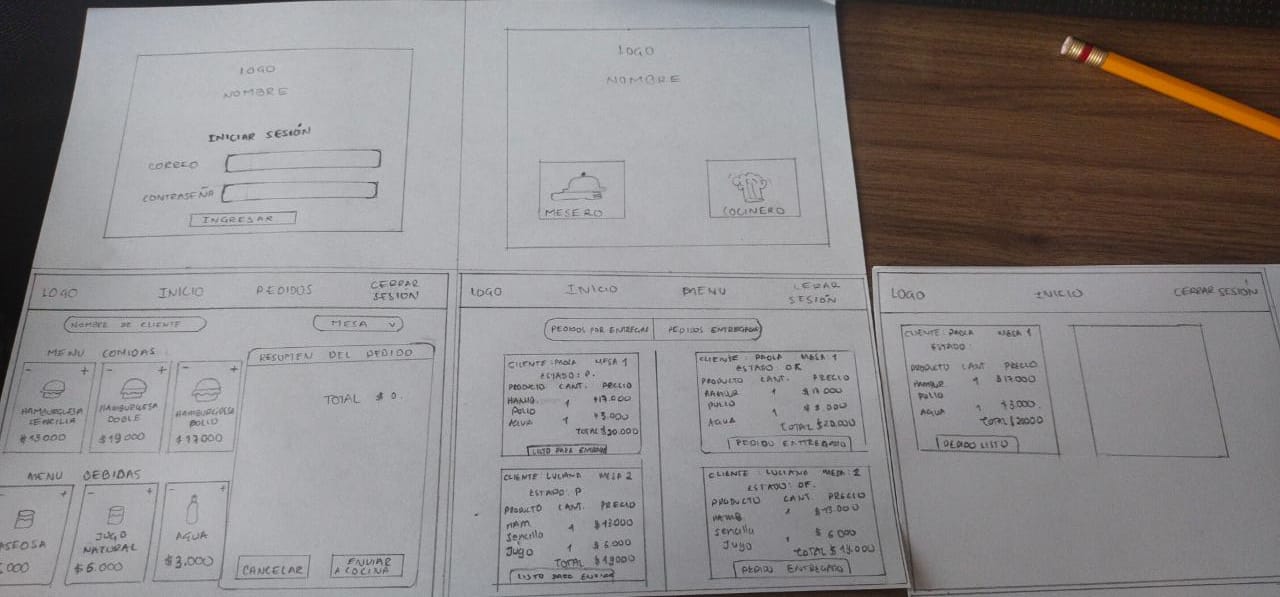 LOGO
NOMBRE
INICIAR SESIÓN
CORREO
CONTRASEÑA
INGRESAR
LOGO
NOMBRE
MESERO
COCINERO
LOGO INICIO PEDIDOS CERRAR SESION
NOMBRE DE CLIENTE MESA V
MENU COMIDAS
- + - + - +
HAMBURGUESA SENCILLA
$13000
HAMBURGUESA DOBLE
$19000
HAMBURGUESA POLLO
$17000
MENU BEBIDAS
- + - + - +
ASEOSA
.000
JUGO NATURAL
$6.000
AGUA
$3.000
RESUMEN DEL PEDIDO
TOTAL $0.
CANCELAR
ENVIAR A COCINA
LOGO INICIO MENU CERAR SESIÓN
PEDIDOS POR ENTREGAR PEDIDOS ENTREGADOS
CLIENTE: PAOLA MESA 1
ESTADO: P.
PRODUCTO CANT. PRECIO
HAMB 1 $17.000
POLLO
AGUA 1 $3.000
TOTAL $20.000
CLIENTE: PAOLA MESA: 1
ESTADO: OK
PRODUCTO CANT. PRECIO
1 $17.000
POLLO
AGUA 1 $3.000
TOTAL $20.000
PEDIDO ENTREGADO
CLIENTE: LUCIANO MESA 2
ESTADO: P
PRODUCTO CANT. PRECIO
HAM 1 $13000
Sencillo
Jugo 1 $6.000
TOTAL $19000
CLIENTE: LUCIANO MESA: 2
ESTADO: OF.
PRODUCTO CANT. PRECIO
HAMB 1 $13.000
Sencilla
Jugo 1 $6000
TOTAL $19.000
PEDIDO ENTREGADO
LOGO INICIO CERRAR SESIÓN
CLIENTE: PAOLA MESA 1
ESTADO:
PRODUCTO CANT PRECIO
HAMBUR 1 $17.000
POLLO
AGUA 1 $3.000.
TOTAL $20000
PEDIDO LISTO